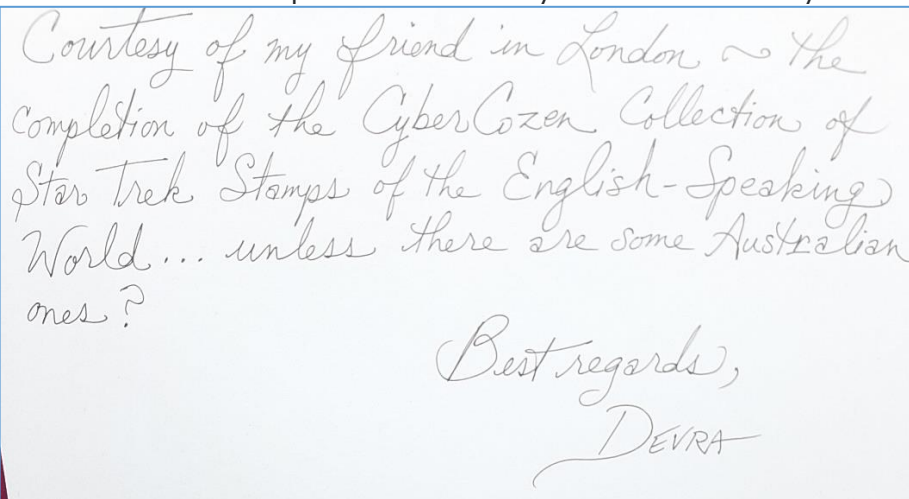 Courtesy of my friend in London ~ the
completion of the CyberCozen Collection of
Star Trek Stamps of the English-Speaking
World... unless there are some Australian
ones?
Best regards,
DEVRA